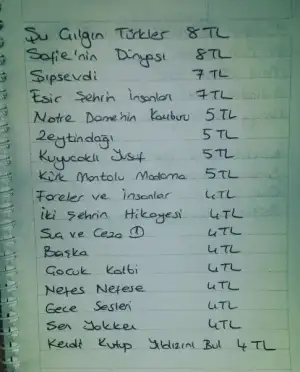 Şu Çılgın Türkler 8 TL
Sofie'nin Dünyası 8TL
Şıpsevdi 7 TL
Esir Şehrin İnsanları 7 TL
Notre Dame'nin Kamburu 5 TL
Zeytindağı 5 TL
Kuyucaklı Yusuf 5TL
Kürk Mantolu Madonna 5 TL
Fareler ve İnsanlar 4TL
İki Şehrin Hikayesi 4TL
Suç ve Ceza ① 4TL
Başka 4TL
Çocuk Kalbi 4TL
Nefes Nefese 4TL
Gece Sesleri 4TL
Sen Yokken 4TL
Kendi Kutup Yıldızını Bul 4 TL